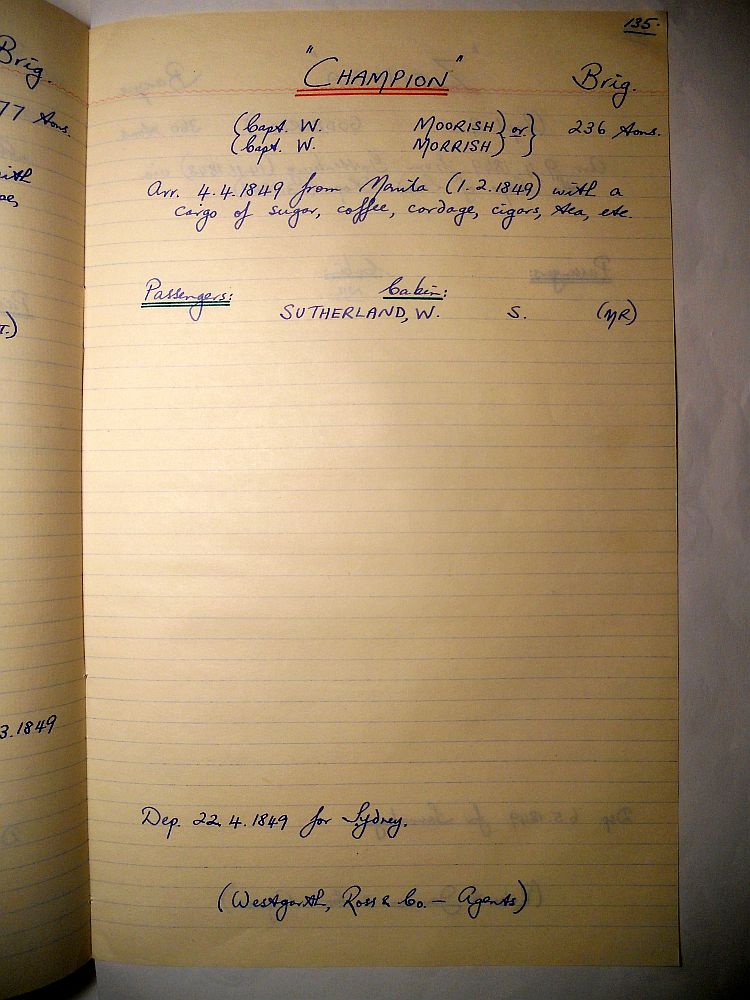 135.
"CHAMPION" Brig.
(Capt. W. MOORISH) or } 236 tons.
(Capt. W. MORRISH) }
Arr. 4.4.1849 from Manila (1.2.1849) with a
cargo of sugar, coffee, cordage, cigars, tea, etc.
Passengers: Cabin:
SUTHERLAND, W. S. (MR)
Dep. 22.4.1849 for Sydney.
(Westgarth, Ross & Co. — Agents)
Brig.
77 tons.
with
3.1849